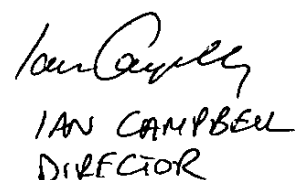 Ian Campbell
IAN CAMPBELL
DIRECTOR